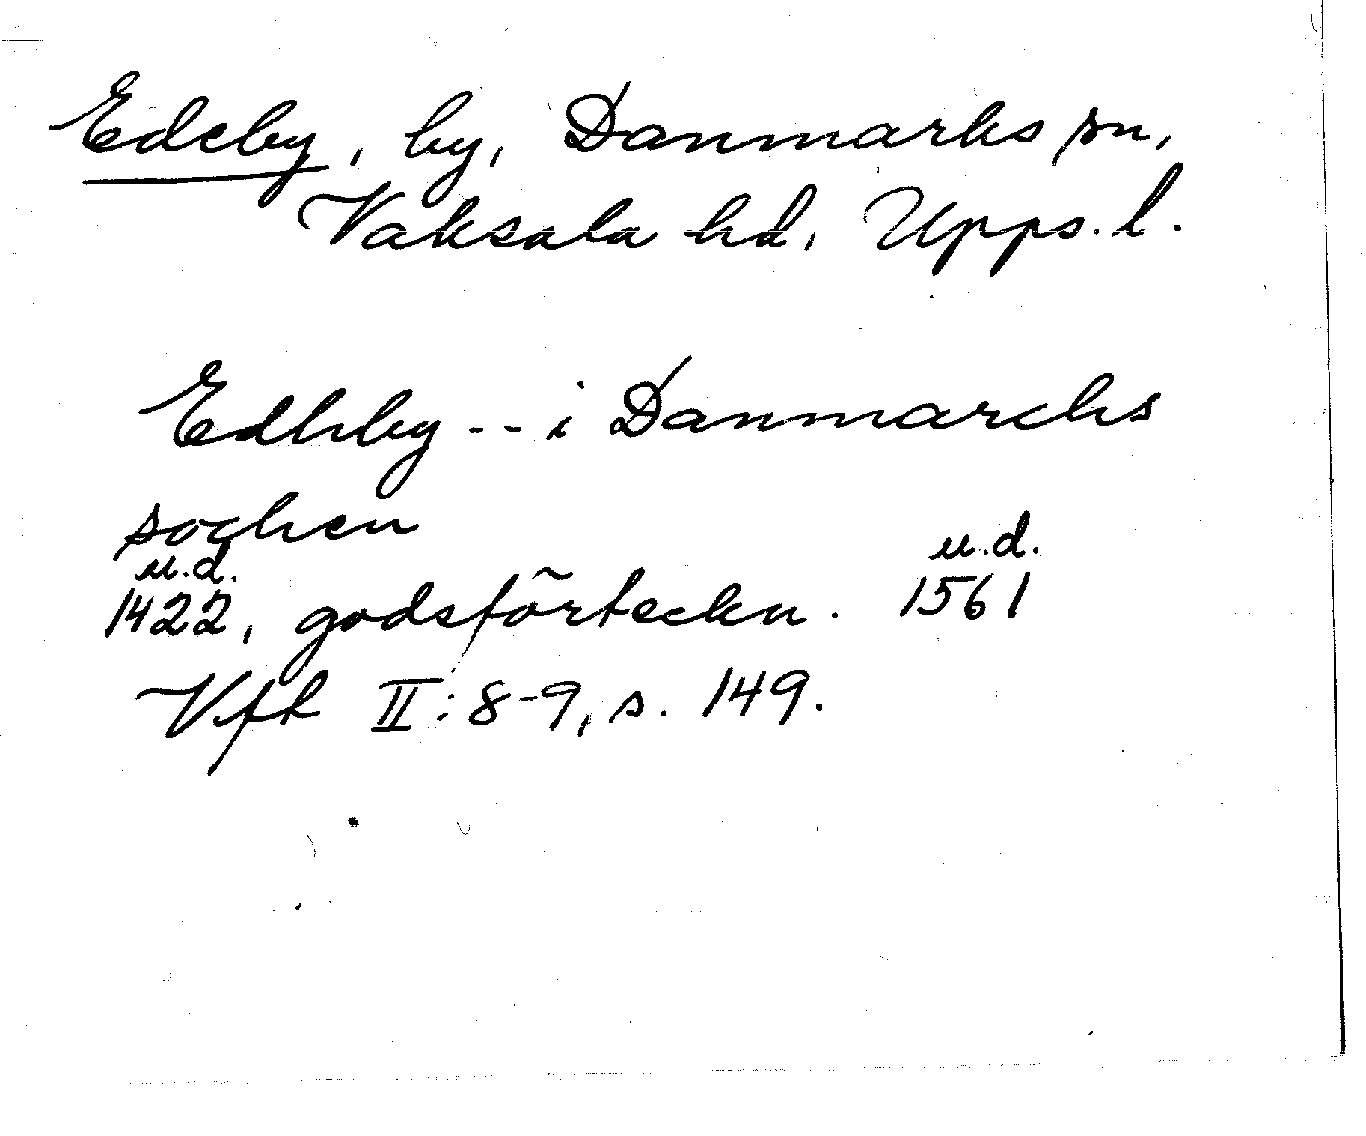 Edeby, by, Danmarks sn,
Vaksala hd, Upps. l.
Edhby -- i Danmarchs
sochen
u.d. u.d.
1422, godsförteckn. 1561
Vfh II: 8-9, s. 149.